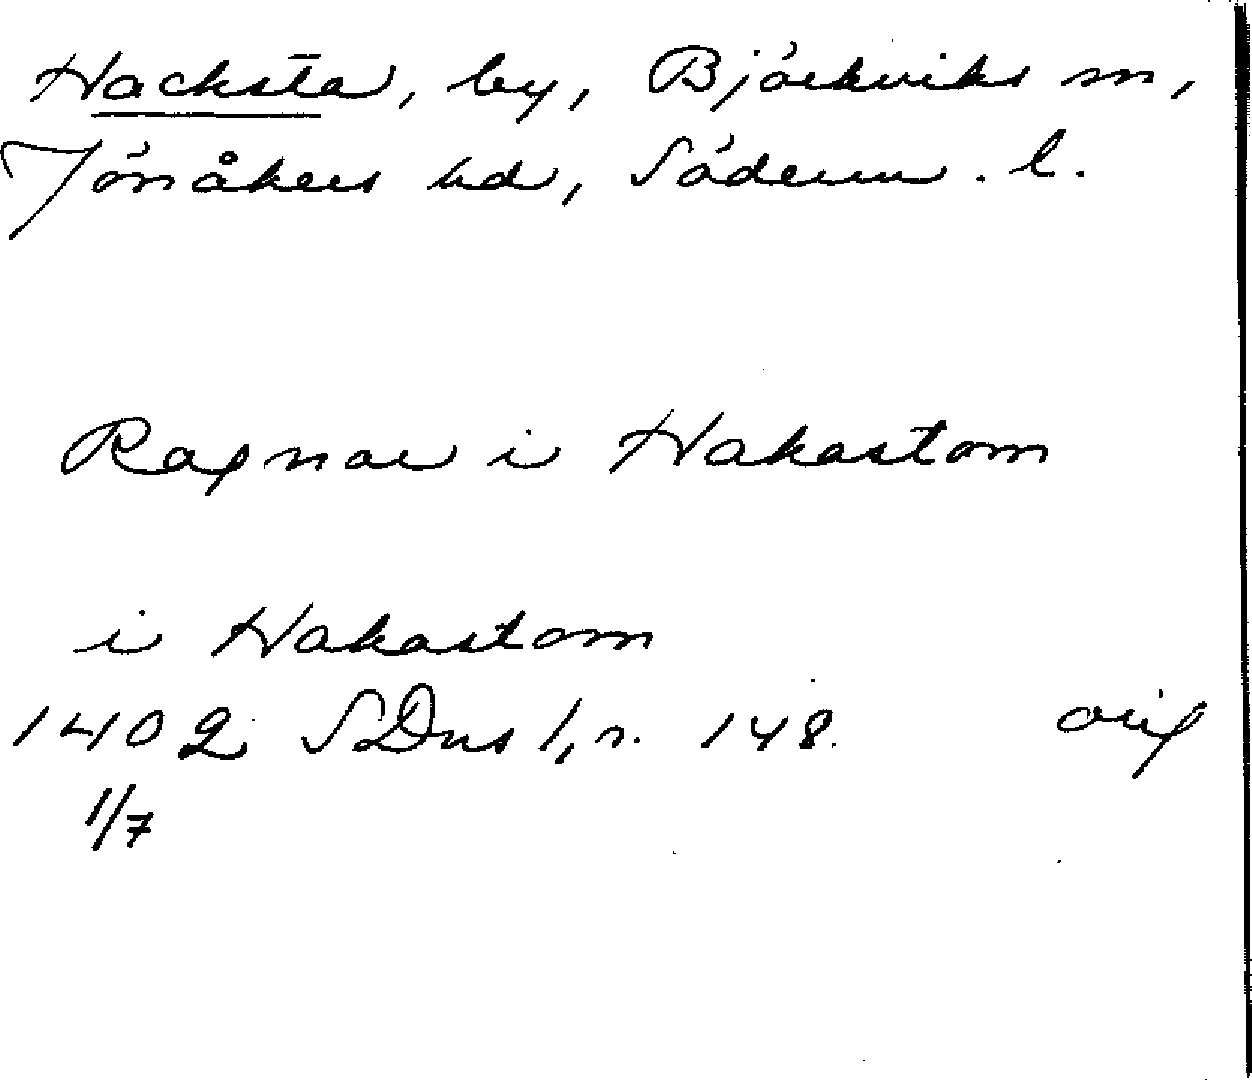 Hacksta, by, Björkviks sn,
Jönåkers hd, Söderm. l.
Ragnar i Hakastom
i Hakastom
1402 SDns 1, s. 148. orig
1/7